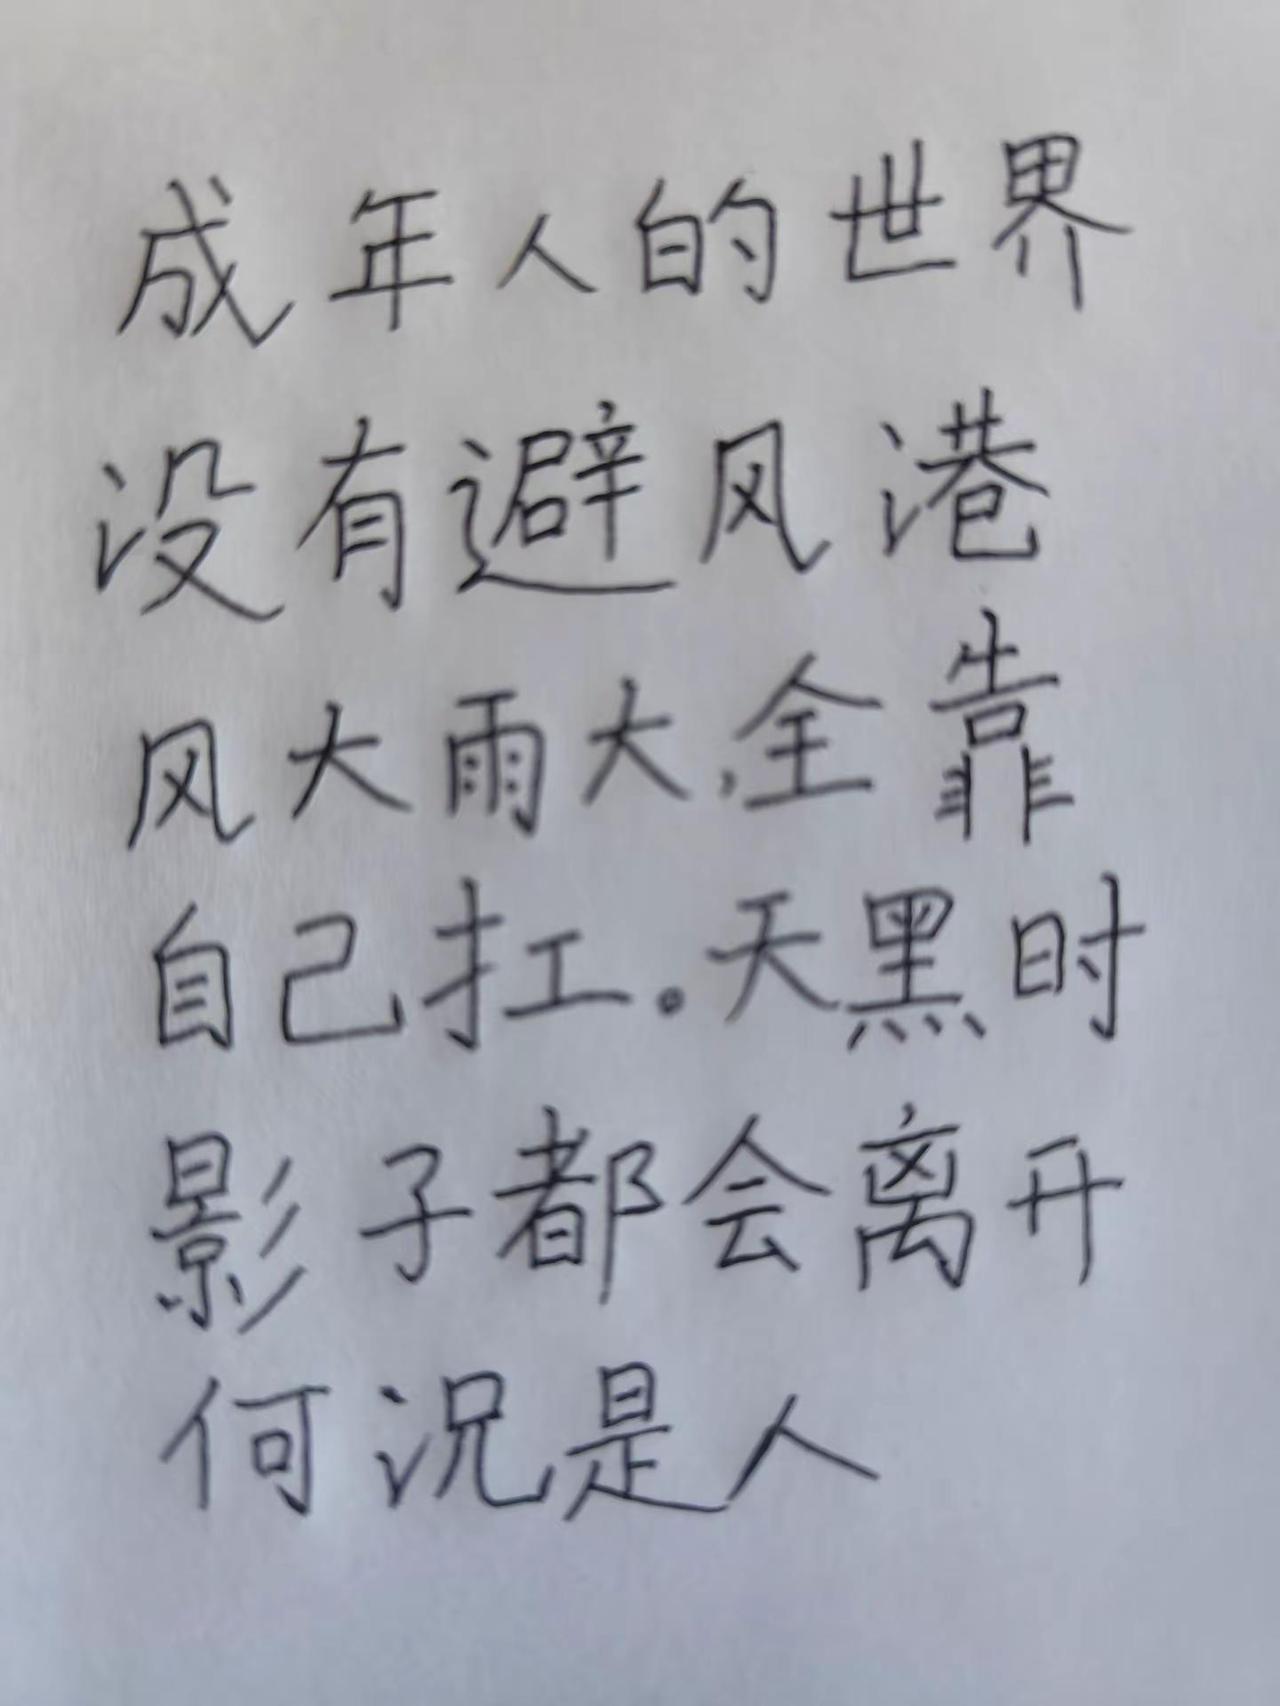 成年人的世界
没有避风港
风大雨大,全靠
自己扛。天黑时
影子都会离开
何况是人